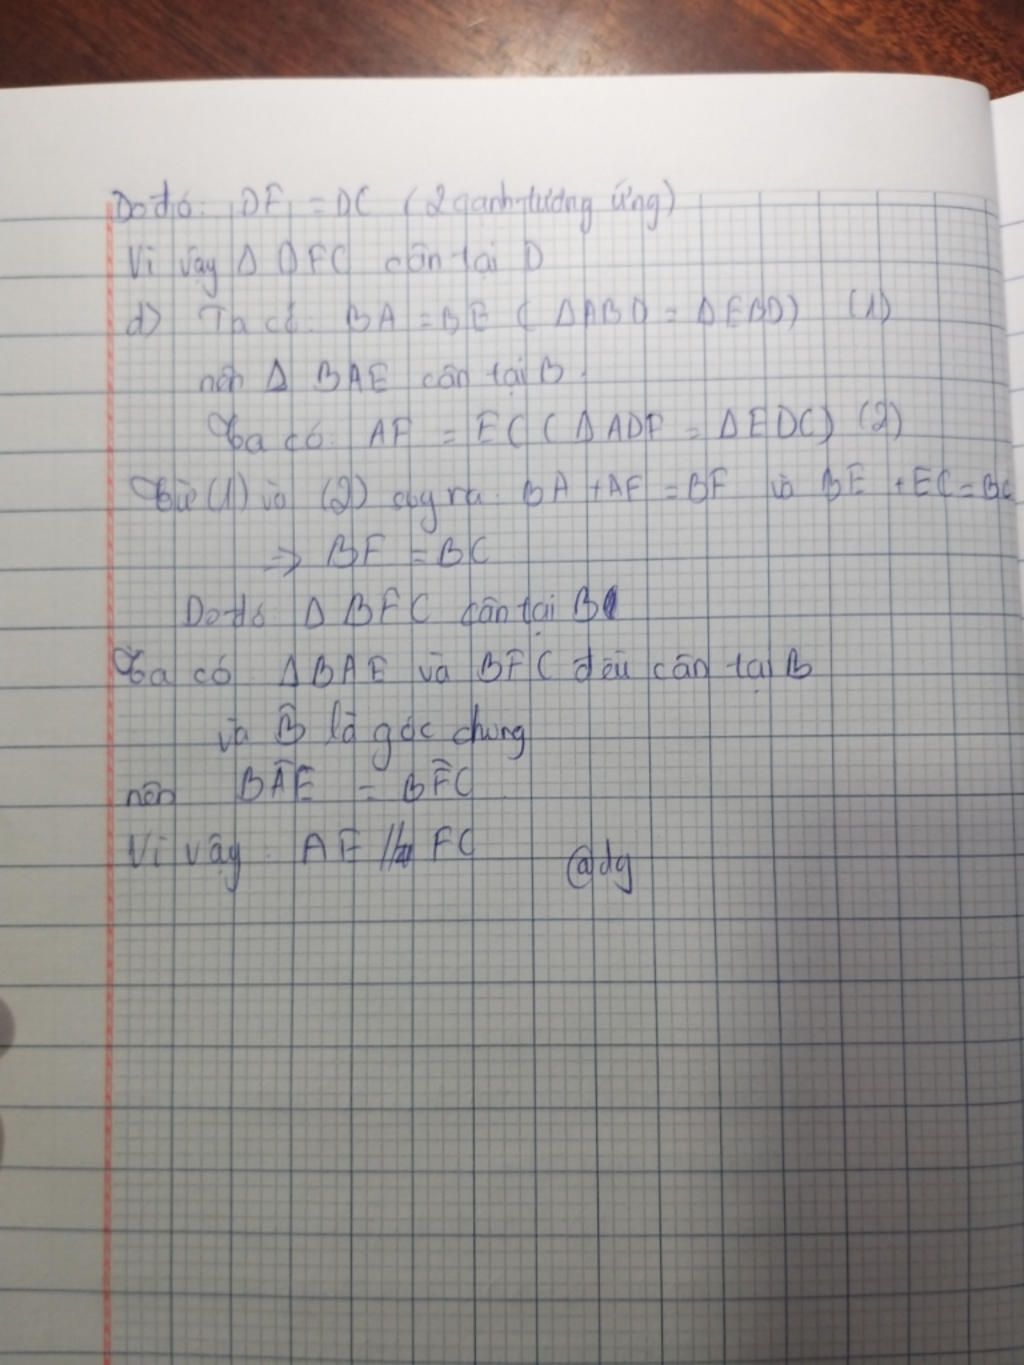 Do đó: DF = DC (2 cạnh tương ứng)
Vì vậy Δ DFC cân tại D
d) Ta có: BA = BE (ΔABD = ΔEBD) (1)
nên Δ BAE cân tại B.
Ta có: AF = EC (ΔADF = ΔEDC) (2)
Từ (1) và (2) suy ra: BA + AF = BF và BE + EC = BC
⇒ BF = BC
Do đó Δ BFC cân tại B
Ta có ΔBAE và BFC đều cân tại B
và B̂ là góc chung
nên BÂE = BF̂C
Vì vậy: AE // FC
@dg